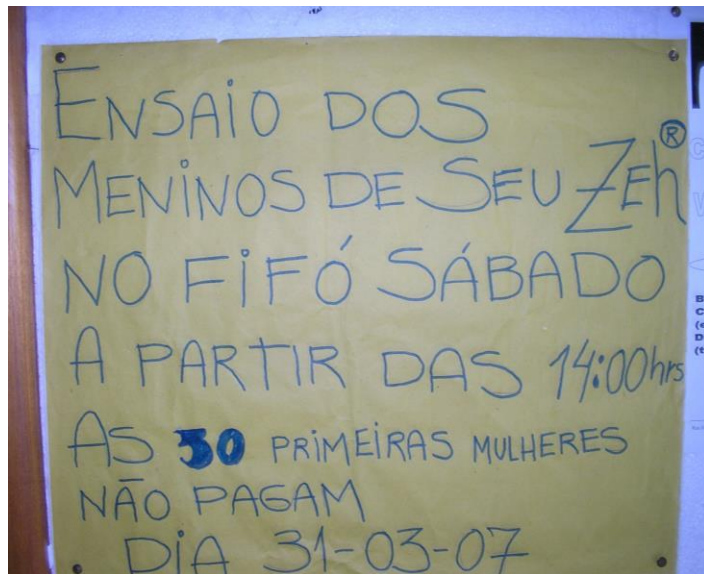 ENSAIO DOS
MENINOS DE SEU ZEH ®
NO FIFÓ SÁBADO
A PARTIR DAS 14:00hrs
AS 30 PRIMEIRAS MULHERES
NÃO PAGAM
DIA 31-03-07